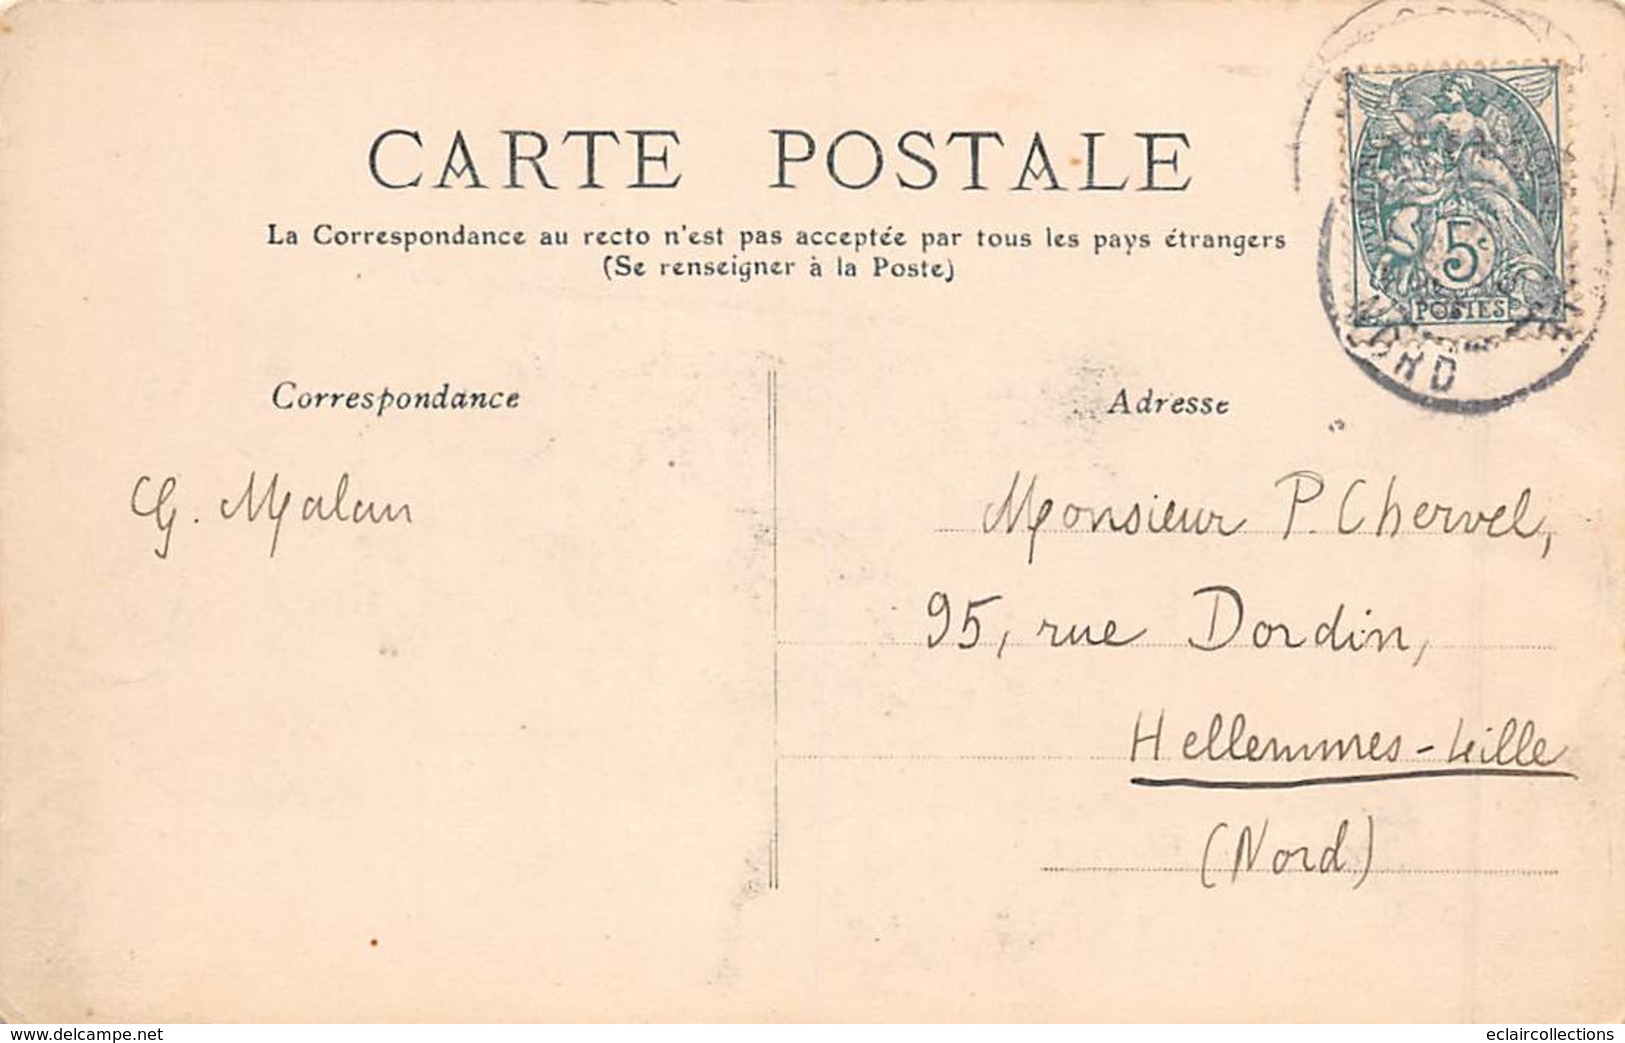 CARTE POSTALE
La Correspondance au recto n'est pas acceptée par tous les pays étrangers
(Se renseigner à la Poste)
5c
POSTES
NORD
Correspondance
Adresse
G. Malan
Monsieur P. Chervel,
95, rue Dordin,
Hellemmes-Lille
(Nord)
delcampe.net
eclaircollections